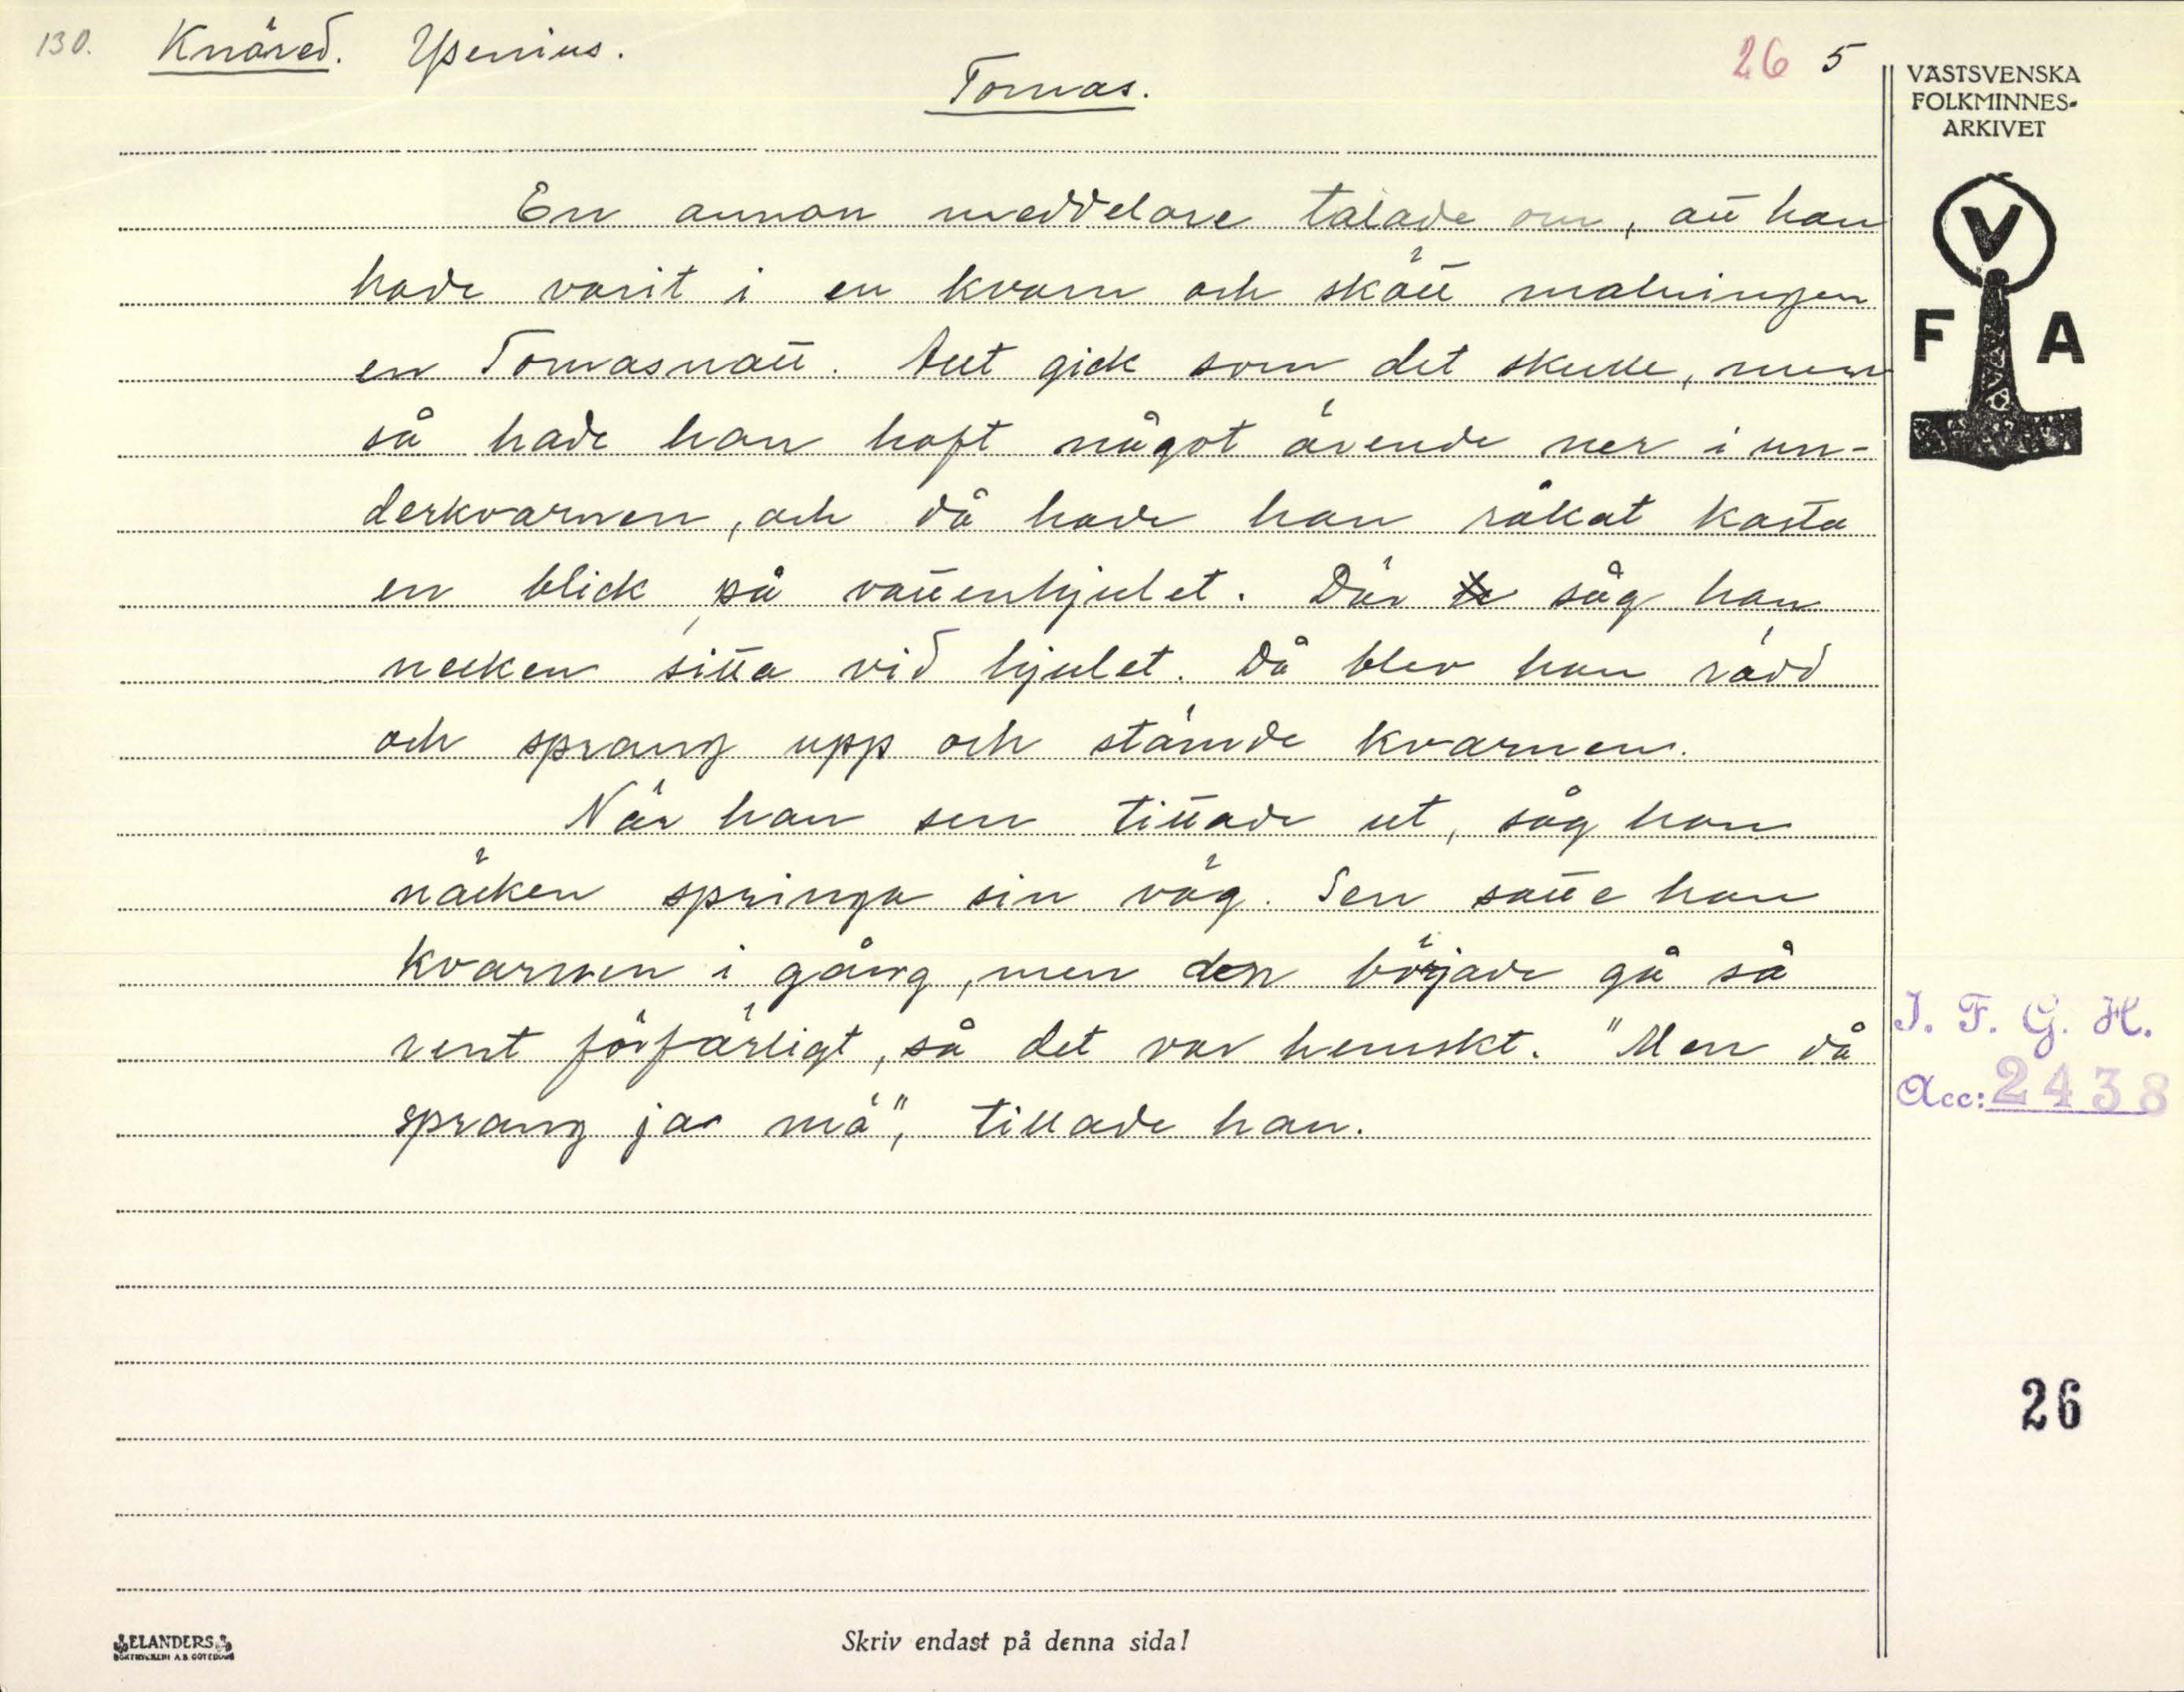 130. Knäred. Ysenius. 26 5
Tomas.
En annan meddelare talade om, att han
hade varit i en kvarn och skött malningen
en Tomasnatt. Allt gick som det skulle, men
så hade han haft något ärende ner i un-
derkvarnen, och då hade han råkat kasta
en blick på vattenhjulet. Där såg han
necken sitta vid hjulet. Då blev han rädd
och sprang upp och stämde kvarnen.
När han sen tittade ut, såg han
näcken springa sin väg. Sen satte han
kvarnen i gång, men den började gå så
rent förfärligt, så det var hemskt. "Men då
sprang ja mä", tillade han.
VÄSTSVENSKA
FOLKMINNES-
ARKIVET
V
F A
I. F. G. H.
Acc: 2438
26
ELANDERS
BOKTRYCKERI A.B. GÖTEBORG
Skriv endast på denna sida!